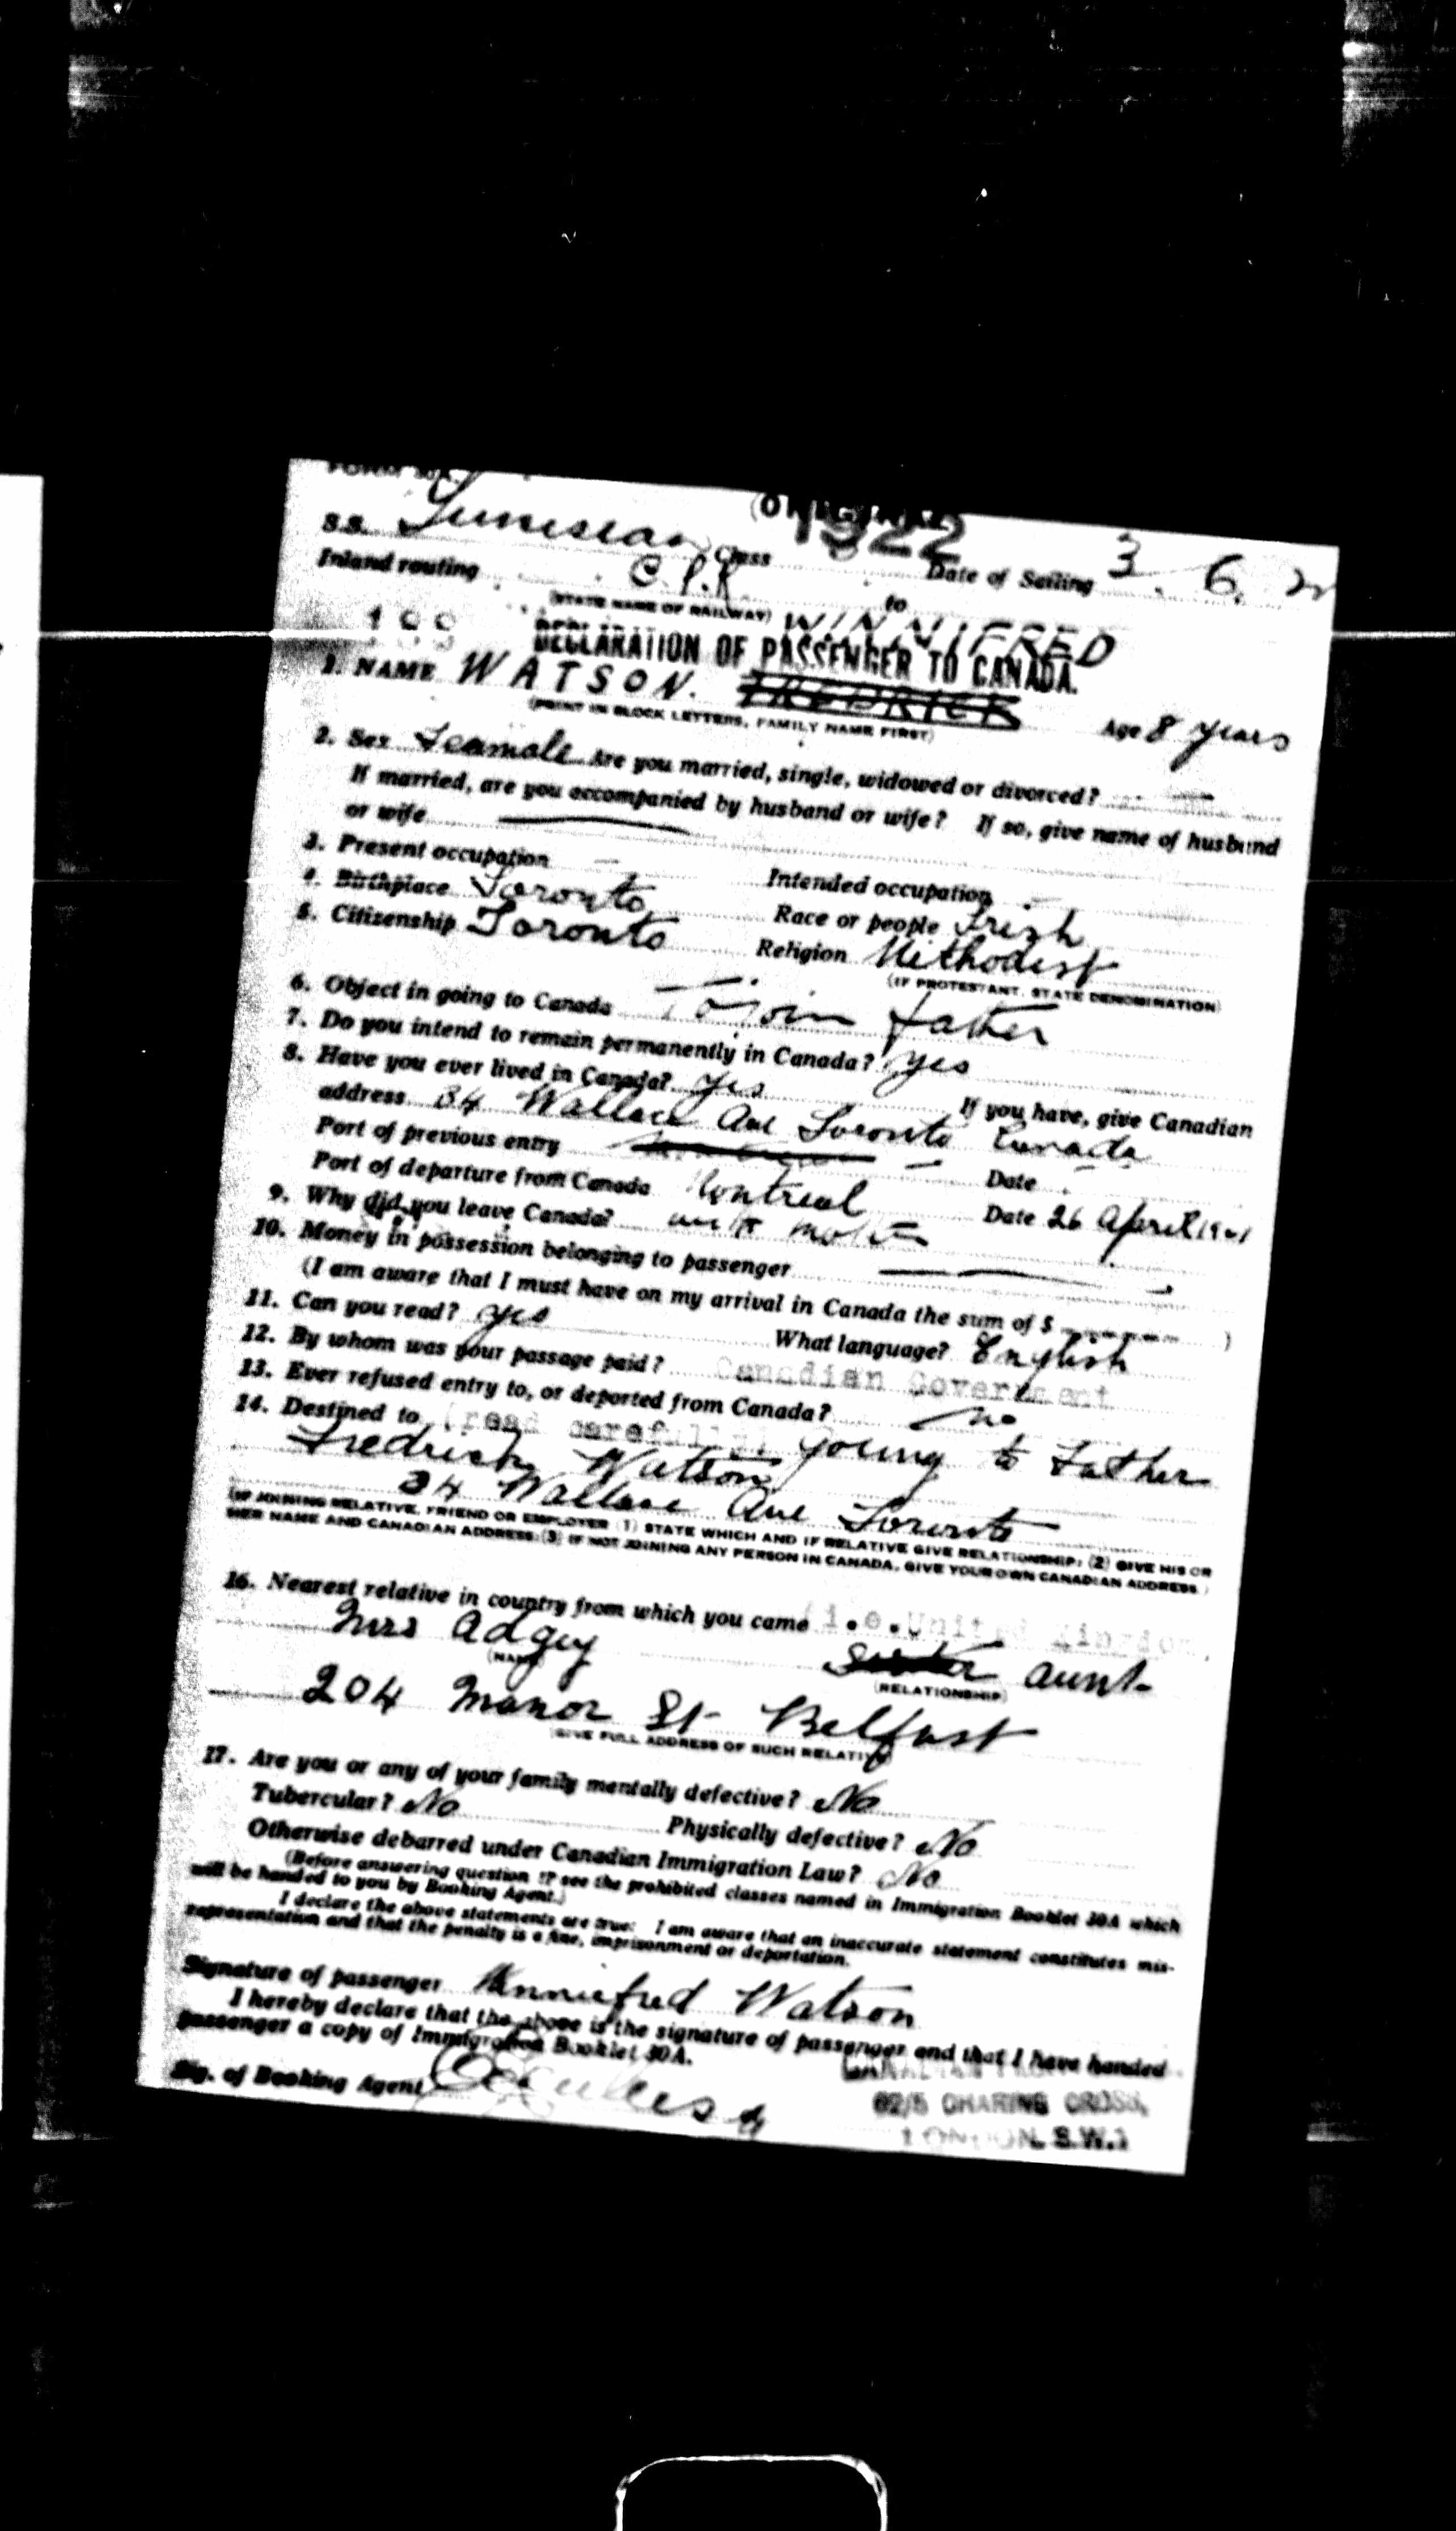 FORM 30A. (ORIGINAL)
1922
S.S. Tunisian Class Date of Sailing 3. 6. 22
Inland routing C.P.R. to
(STATE NAME OF RAILWAY)
WINNIFRED
DECLARATION OF PASSENGER TO CANADA.
1. NAME WATSON. FREDRICK Age 8 years
(PRINT IN BLOCK LETTERS, FAMILY NAME FIRST)
2. Sex Feamale Are you married, single, widowed or divorced? —
If married, are you accompanied by husband or wife? If so, give name of husband
or wife —
3. Present occupation — Intended occupation —
4. Birthplace Toronto Race or people Irish
5. Citizenship Toronto Religion Methodist
(IF PROTESTANT, STATE DENOMINATION)
6. Object in going to Canada To join father
7. Do you intend to remain permanently in Canada? yes
8. Have you ever lived in Canada? yes If you have, give Canadian
address 34 Wallace Ave Toronto Canada
Port of previous entry — Date
Port of departure from Canada Montreal Date 26 April 1921
9. Why did you leave Canada? with mother
10. Money in possession belonging to passenger —
(I am aware that I must have on my arrival in Canada the sum of $ )
11. Can you read? yes What language? English
12. By whom was your passage paid? Canadian Government
13. Ever refused entry to, or deported from Canada? no
14. Destined to (read carefully) going to Father
Fredrick Watson
34 Wallace Ave Toronto
(IF JOINING RELATIVE, FRIEND OR EMPLOYER (1) STATE WHICH AND IF RELATIVE GIVE RELATIONSHIP; (2) GIVE HIS OR
HER NAME AND CANADIAN ADDRESS; (3) IF NOT JOINING ANY PERSON IN CANADA, GIVE YOUR OWN CANADIAN ADDRESS.)
16. Nearest relative in country from which you came (i.e. United Kingdom
Mrs Adgey aunt
(NAME) (RELATIONSHIP)
204 Manor St Belfast
(GIVE FULL ADDRESS OF SUCH RELATIVE)
17. Are you or any of your family mentally defective? No
Tubercular? No Physically defective? No
Otherwise debarred under Canadian Immigration Law? No
(Before answering question 17 see the prohibited classes named in Immigration Booklet 30A which
will be handed to you by Booking Agent.)
I declare the above statements are true: I am aware that an inaccurate statement constitutes mis-
representation and that the penalty is a fine, imprisonment or deportation.
Signature of passenger Winniefred Watson
I hereby declare that the above is the signature of passenger and that I have handed
passenger a copy of Immigration Booklet 30A.
Sig. of Booking Agent
62/5 CHARING CROSS,
LONDON. S.W.1